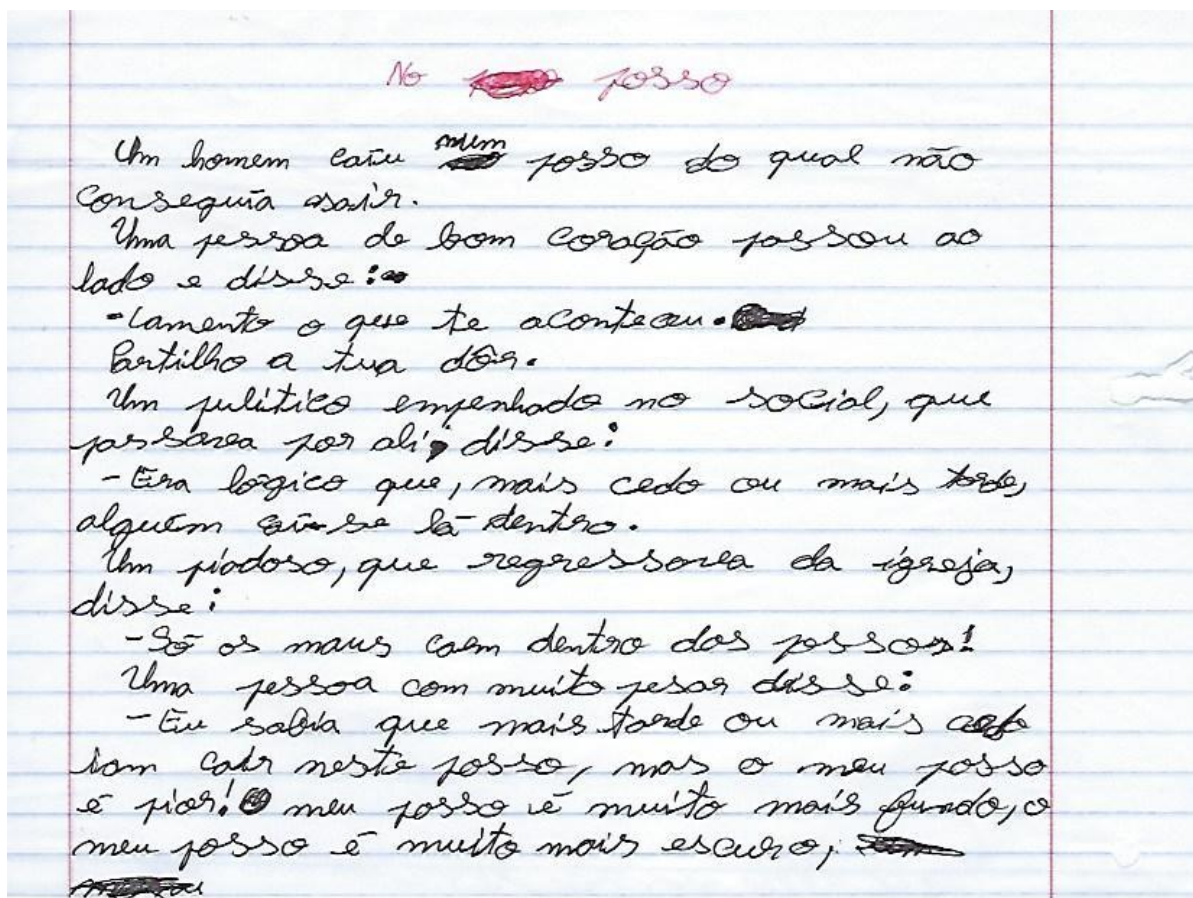 No posso
Um homem caíu num posso do qual não
conseguia sair.
Uma pessoa de bom coração passou ao
lado e disse:
-Lamento o que te aconteceu.
Partilho a tua dôr.
Um pulitico empenhado no social, que
passava por ali, disse:
-Era lógico que, mais cedo ou mais tarde,
alguém caí-se lá dentro.
Um piadoso, que regressava da igreja,
disse:
-Só os maus caem dentro dos possos!
Uma pessoa com muito pesar disse:
-Eu sabia que mais tarde ou mais cedo
iam cair neste posso, mas o meu posso
é pior! O meu posso é muito mais fundo, o
meu posso é muito mais escuro,